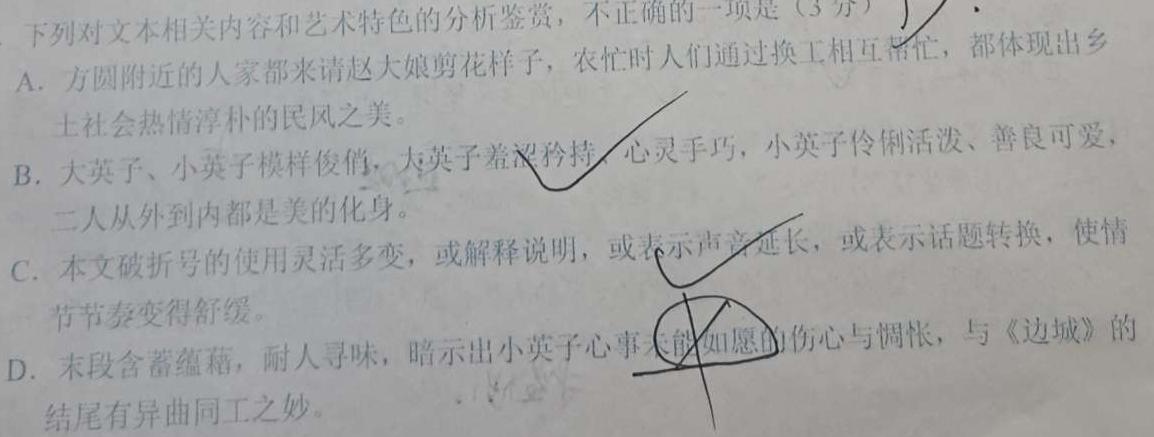 下列对文本相关内容和艺术特色的分析鉴赏，不正确的一项是（3分）
A．方圆附近的人家都来请赵大娘剪花样子，农忙时人们通过换工相互帮忙，都体现出乡
土社会热情淳朴的民风之美。
B．大英子、小英子模样俊俏，大英子羞涩矜持、心灵手巧，小英子伶俐活泼、善良可爱，
二人从外到内都是美的化身。
C．本文破折号的使用灵活多变，或解释说明，或表示声音延长，或表示话题转换，使情
节节奏变得舒缓。
D．末段含蓄蕴藉，耐人寻味，暗示出小英子心事未能如愿的伤心与惆怅，与《边城》的
结尾有异曲同工之妙。